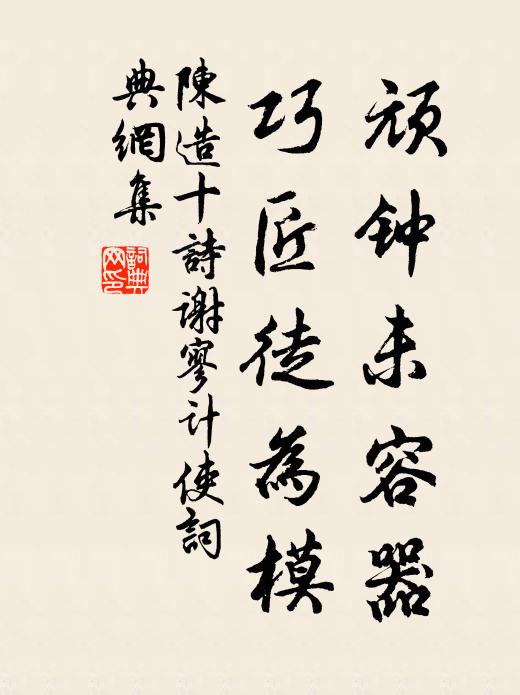 顽钟未容器
巧匠徒為模
陳造十詩謝寥计使詞
典網集
詞典网印